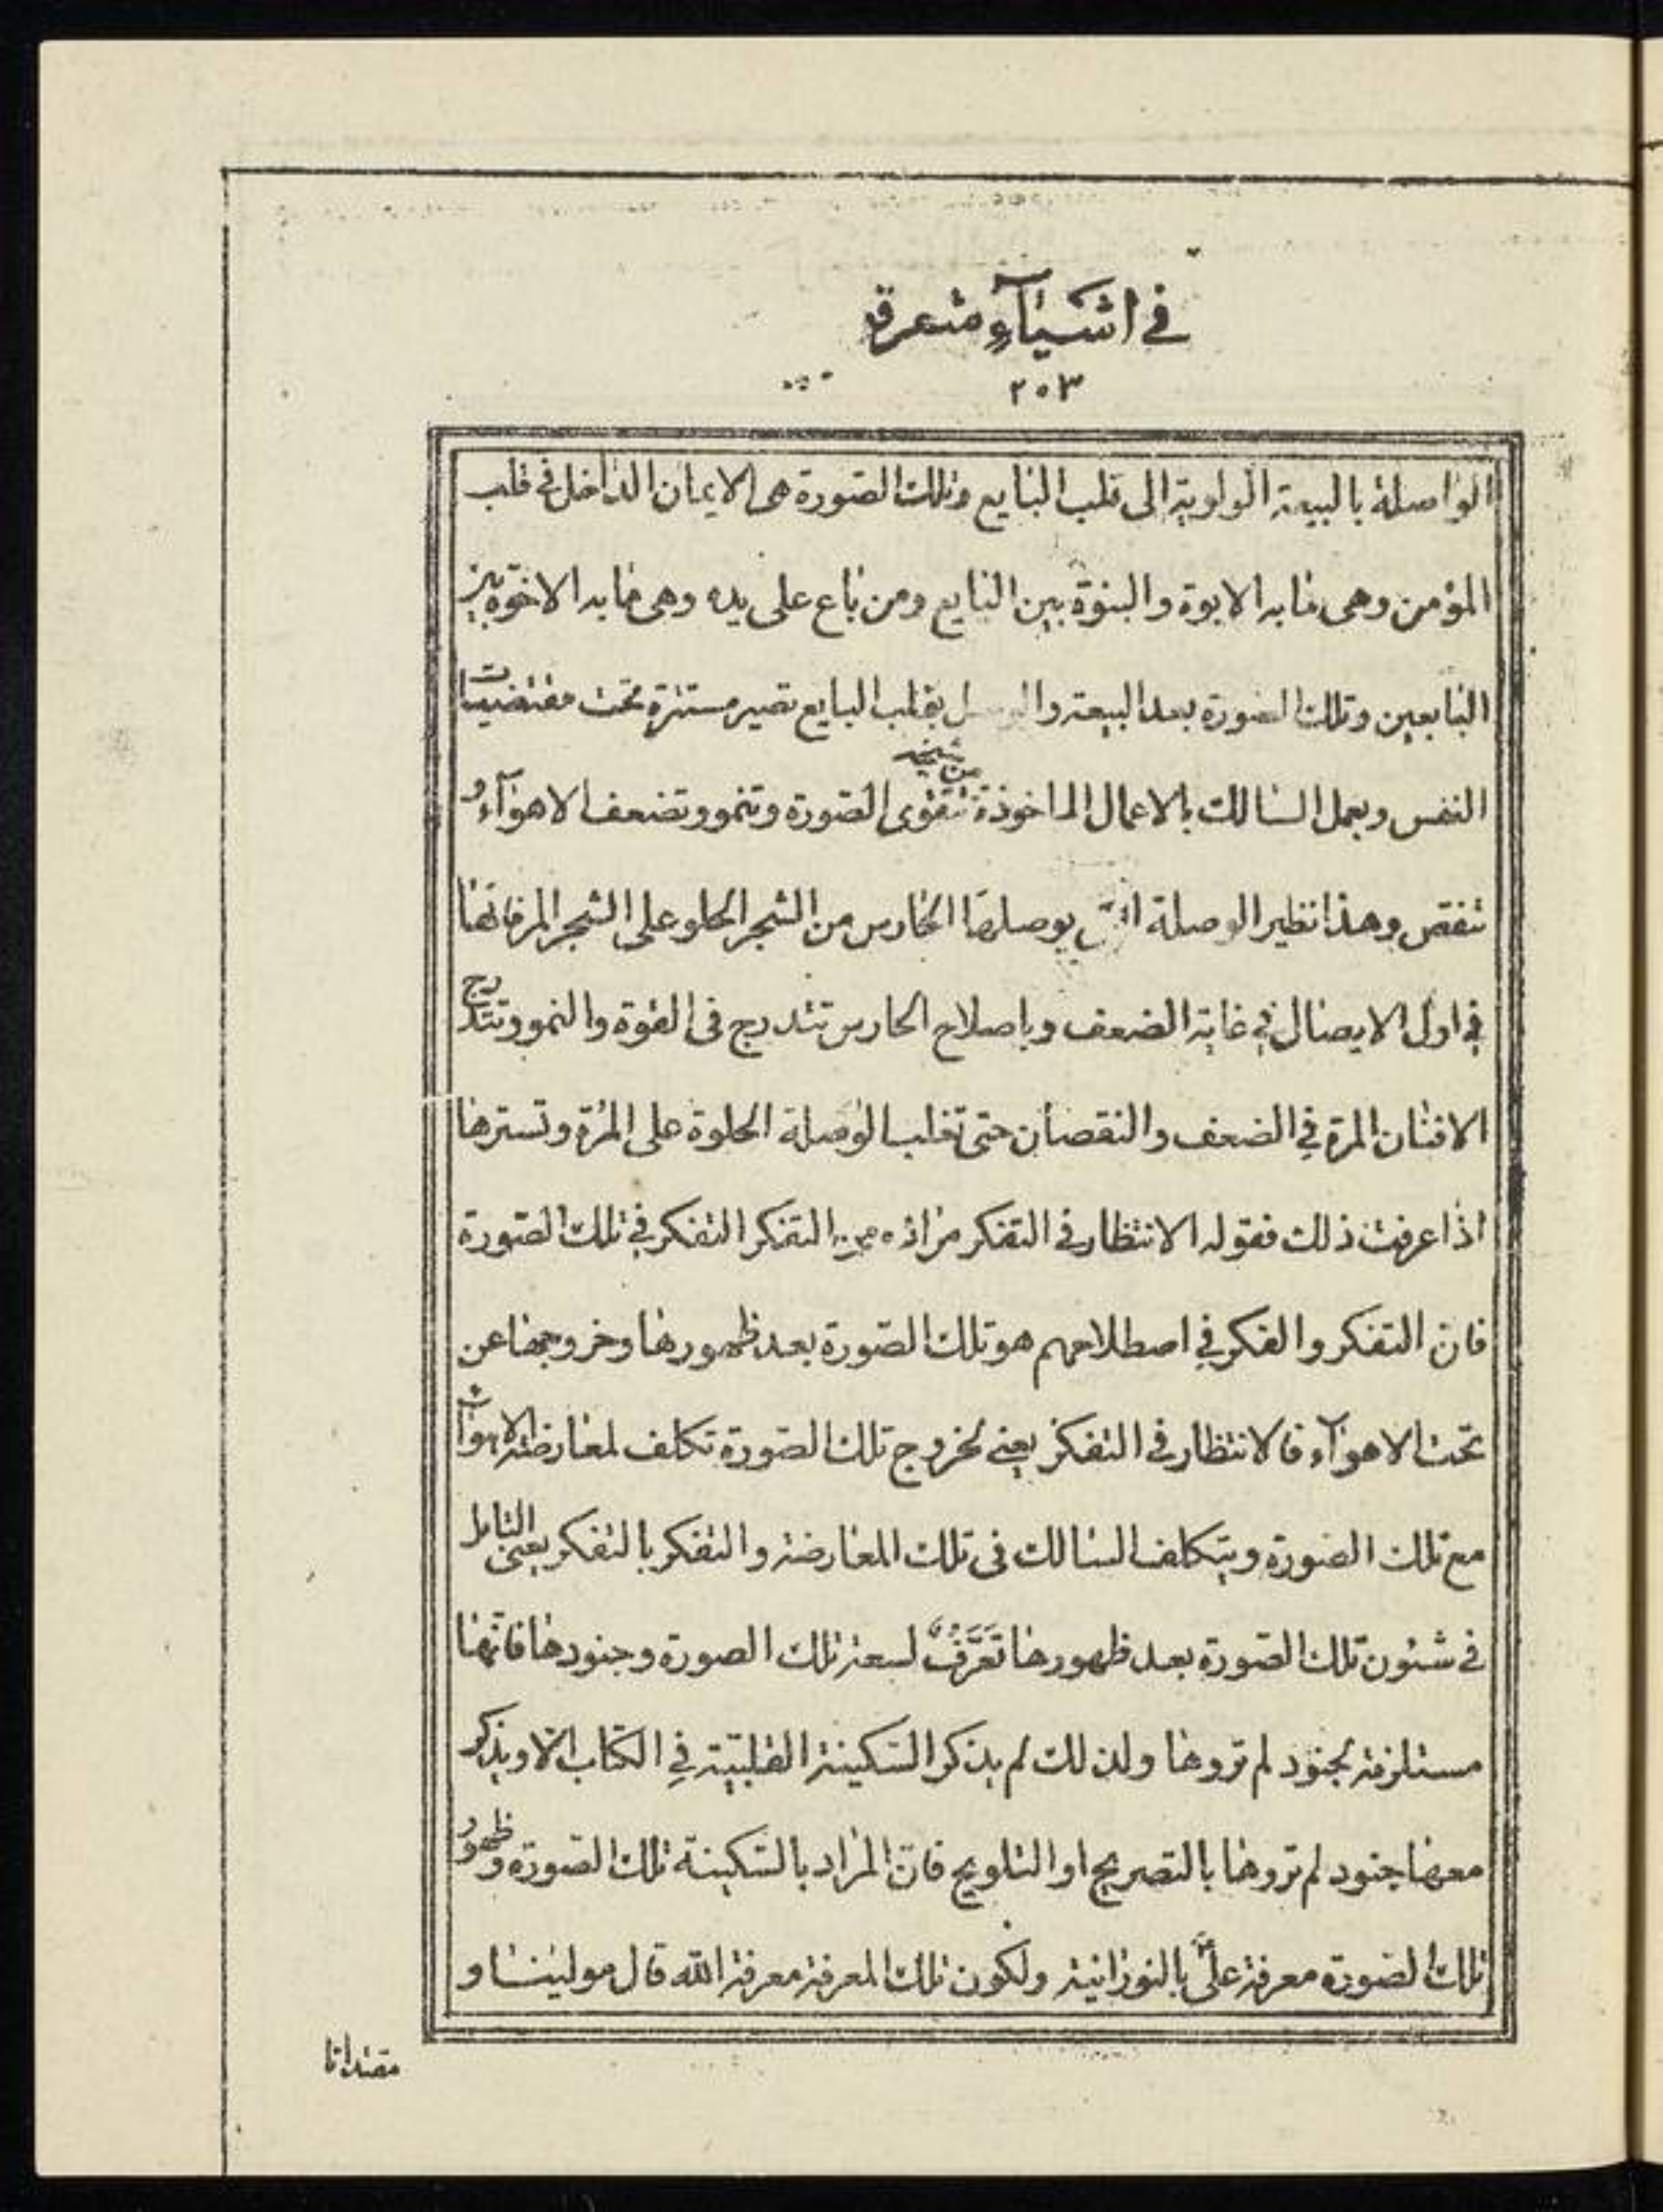 في اشياآءٍ متعرق
٢٠٣
الواصلة بالبيعة الولوية الى قلب البايع وتلك الصورة هى الايمان الداخل في قلب
المؤمن وهى مابه الابوة والبنوّة بين البايع ومن باع على يده وهى مابه الاخوّة بين
البايعين وتلك الصورة بعد البيعة و بقلب البايع تصير مستترة تحت مقتضيات
النفس وبعمل السالك بالاعمال الماخوذة من شيخه تتقوى الصورة وتنمو وتضعف الاهوآء و
تنقص وهذا نظير الوصلة يوصلها الحارس من الشجر الحلو على الشجر المر فانّها
في اول الايصال في غاية الضعف وباصلاح الحارس تتدرج فى القوة والنمو وتتدرج
الافنان المرة في الضعف والنقصان حتى تغلب الوصلة الحلوة على المرّة وتسترها
اذا عرفت ذلك فقوله الانتظار في التفكر مراده من التفكر التفكر في تلك الصورة
فانّ التفكر والفكر في اصطلاحهم هو تلك الصورة بعد ظهورها وخروجها عن
تحت الاهوآء فالانتظار في التفكر يعنى لخروج تلك الصورة تكلف لمعارضة الاهوآء
مع تلك الصورة ويتكلف السالك فى تلك المعارضة والتفكر بالتفكر يعنى التامل
في شئون تلك الصورة بعد ظهورها تَعَرُّفٌ لسعة تلك الصورة وجنودها فانّها
مستلزمة لجنود لم تروها ولذلك لم يذكر السّكينة القلبيّة في الكتاب الّا ويذكر
معها جنود لم تروها بالتصريح او التلويح فانّ المراد بالسّكينة تلك الصورة وظهور
تلك الصورة معرفة علىّ بالنورانية ولكون تلك المعرفة معرفة الله قال مولينا و
مقتدانا